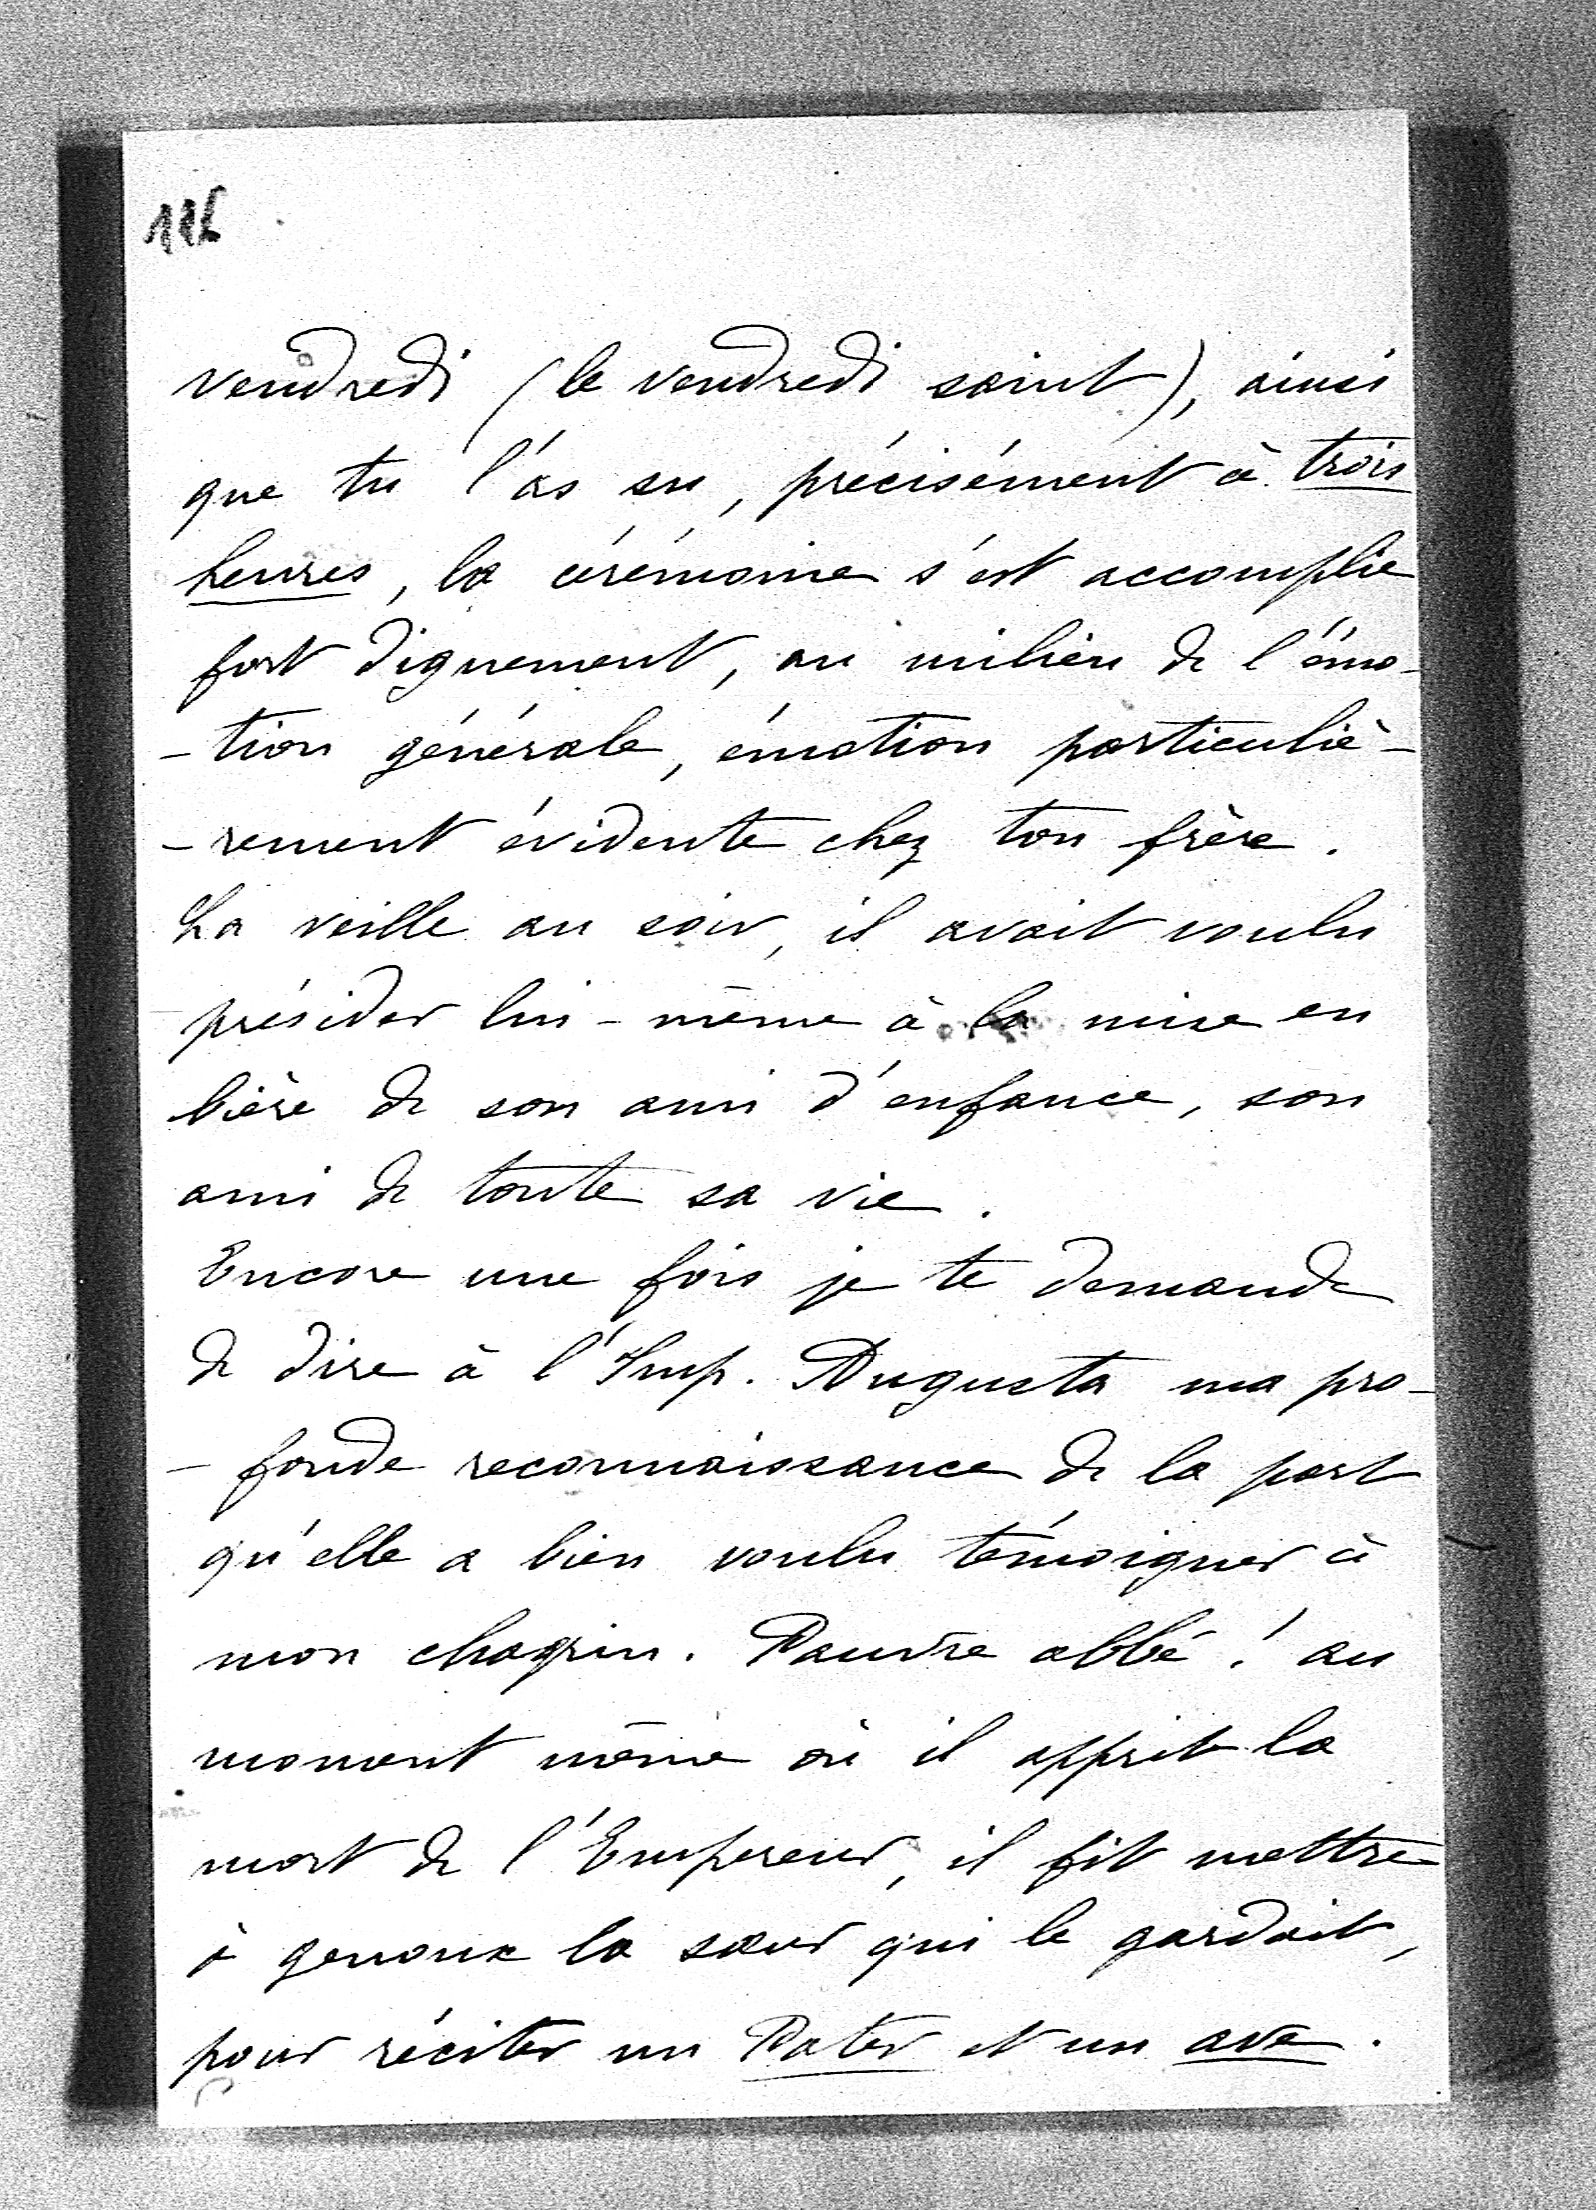 vendredi (le vendredi saint), ainsi
que tu l'as su, précisément à trois
heures, la cérémonie s'est accomplie
fort dignement, au milieu de l'émo-
-tion générale, émotion particuliè-
-rement évidente chez ton frère.
La veille au soir, il avait voulu
présider lui-même à la mise en
bière de son ami d'enfance, son
ami de toute sa vie.
Encore une fois je te demande
de dire à l'Imp. Augusta ma pro-
-fonde reconnaissance de la part
qu'elle a bien voulu témoigner à
mon chagrin. Pauvre abbé! au
moment même où il apprit la
mort de l'Empereur, il fit mettre
à genoux la sœur qui le gardait,
pour réciter un Pater et un ave.